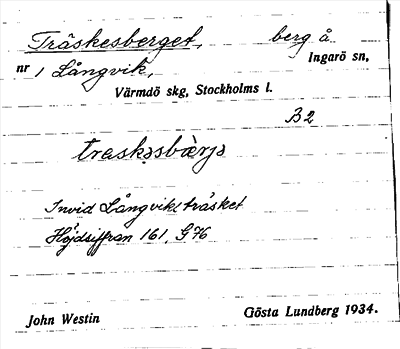 Träskesberget, berg å
Ingarö sn,
nr 1 Långvik,
Värmdö skg, Stockholms l.
B2
traskəsbærjə
Invid Långvikträsket
Höjdsiffran 161, G76
John Westin Gösta Lundberg 1934.